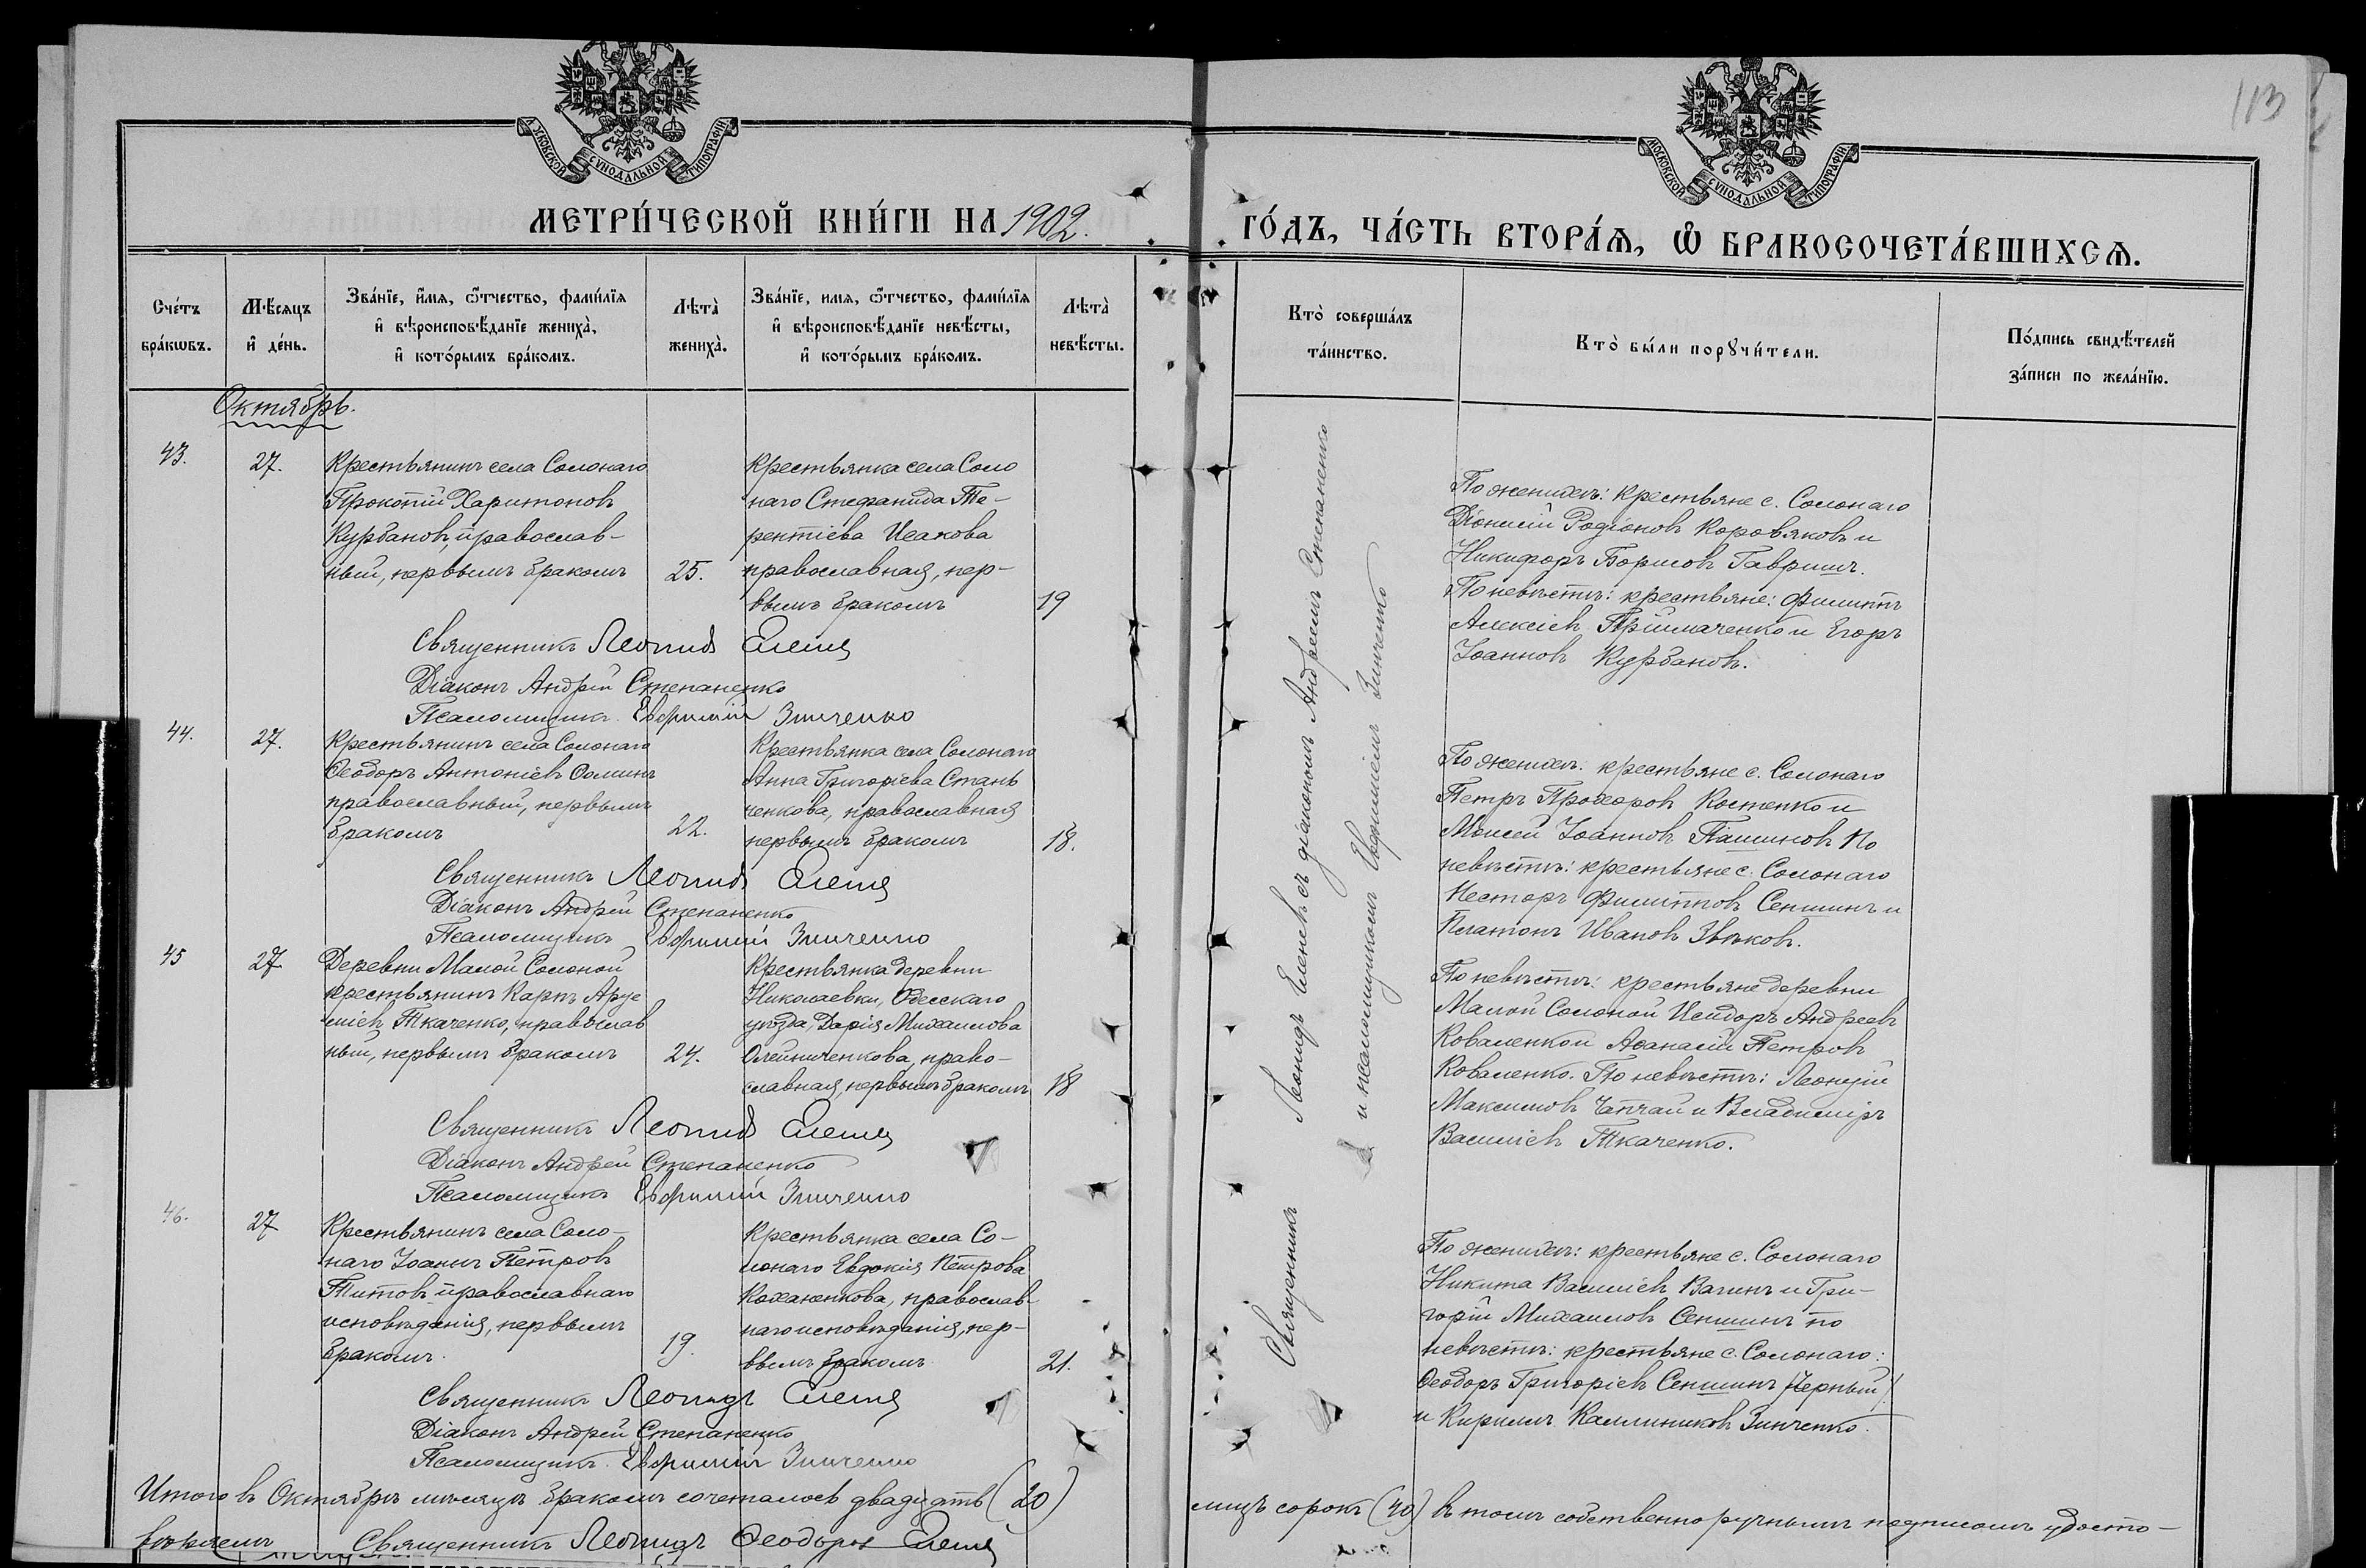 113
МОСКОВСКОЙ СѴНОДАЛЬНОЙ ТИПОГРАФІИ
МОСКОВСКОЙ СѴНОДАЛЬНОЙ ТИПОГРАФІИ
МЕТРИ́ЧЕСКОЙ КНИ́ГИ НА 1902.
ГО́ДЪ, ЧА́СТЬ ВТОРА́Ѧ, Ѽ БРАКОСОЧЕТА́ВШИХСѦ.
Сче́тъ
бра́кѡвъ.
Мѣ́сѧцъ
и҆ де́нь.
Зва́нїе, и҆́мѧ, ѻ҆́тчество, фами́лїѧ
и҆ вѣроисповѣ́данїе жениха̀,
и҆ кото́рымъ бра́комъ.
Лѣта̀
жениха̀.
Зва́нїе, имѧ, ѻ҆́тчество, фами́лїѧ
и҆ вѣроисповѣ́данїе невѣ́сты,
и҆ кото́рымъ бра́комъ.
Лѣта̀
невѣ́сты.
Кто̀ соверша́лъ
та́инство.
Кто̀ бы́ли порꙋчи́тели.
По́дпись свидѣ́телей
за́писи по жела́нїю.
Октябрь.
43.
27.
Крестьянинъ села Солонаго
Прокопій Харитоновъ
Курбановъ, православ-
ный, первымъ бракомъ
25.
Крестьянка села Соло
наго Стефанида Те-
рентіева Исакова
православная, пер-
вымъ бракомъ
19
По женихѣ: крестьяне с. Солонаго
Діонисій Родіоновъ Коровяковъ и
Никифоръ Борисовъ Гавришъ.
По невѣстѣ: крестьяне: Филиппъ
Алексіевъ Пріймаченко и Егоръ
Іоанновъ Курбановъ.
Священникъ Леонидъ Еленев
Діаконъ Андрей Степаненко
Псаломщикъ Евфимій Зинченко
44.
27.
Крестьянинъ села Солонаго
Ѳеодоръ Антоніевъ Осминъ
православный, первымъ
бракомъ
22.
Крестьянка села Солонаго
Анна Григоріева Стань
ченкова, православная
первымъ бракомъ
18.
По женихѣ: крестьяне с. Солонаго
Петръ Прохоровъ Костенко и
Моисей Іоанновъ Пашиновъ По
невѣстѣ: крестьяне с. Солонаго
Несторъ Филипповъ Сеншинъ и
Платонъ Ивановъ Звѣковъ.
Священникъ Леонидъ Еленев
Діаконъ Андрей Степаненко
Псаломщикъ Евфимій Зинченко
45
27
Деревни Малой Солоной
крестьянинъ Карпъ Арте
міевъ Ткаченко, православ
ный, первымъ бракомъ
24.
Крестьянка деревни
Николаевки, Одесскаго
уѣзда, Дарія Михаилова
Олейниченкова, право-
славная, первымъ бракомъ
18
По невѣстѣ: крестьяне деревни
Малой Солоной Исидоръ Андреевъ
Коваленко и Аѳанасій Петровъ
Коваленко. По невѣстѣ: Леонтій
Максимовъ Чапчай и Владиміръ
Василіевъ Ткаченко.
Священникъ Леонидъ Еленев
Діаконъ Андрей Степаненко
Псаломщикъ Евфимій Зинченко
46.
27
Крестьянинъ села Соло-
наго Іоаннъ Петровъ
Титовъ православнаго
исповѣданія, первымъ
бракомъ.
19.
Крестьянка села Со-
лонаго Евдокія Петрова
Коханенкова, православ-
наго исповѣданія, пер-
вымъ бракомъ
21.
По женихѣ: крестьяне с. Солонаго
Никита Василіевъ Вагинъ и Гри-
горій Михаиловъ Сеншинъ по
невѣстѣ: крестьяне с. Солонаго:
Ѳеодоръ Григоріевъ Сеншинъ (Черный)
и Кириллъ Каллиниковъ Зинченко.
Священникъ Леонидъ Еленев
Діаконъ Андрей Степаненко
Псаломщикъ Евфимій Зинченко
Священникъ Леонидъ Еленевъ съ діакономъ Андреемъ Степаненко
и псаломщикомъ Евфиміемъ Зинченко
Итого въ Октябрѣ мѣсяцѣ бракомъ сочеталось двадцать (20)
лицъ сорокъ (40) въ томъ собственноручнымъ подписомъ удосто-
вѣряемъ Священникъ Леонидъ Ѳеодоров Еленев